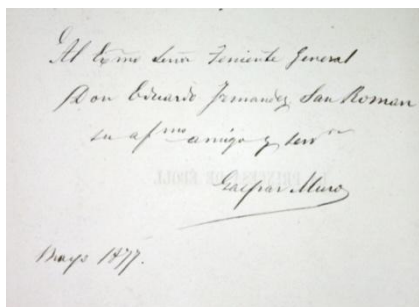 Al Exmo Señor Teniente General
Don Eduardo Fernandez San Roman
su afmo amigo y servor
Gaspar Muro
Mayo 1877.